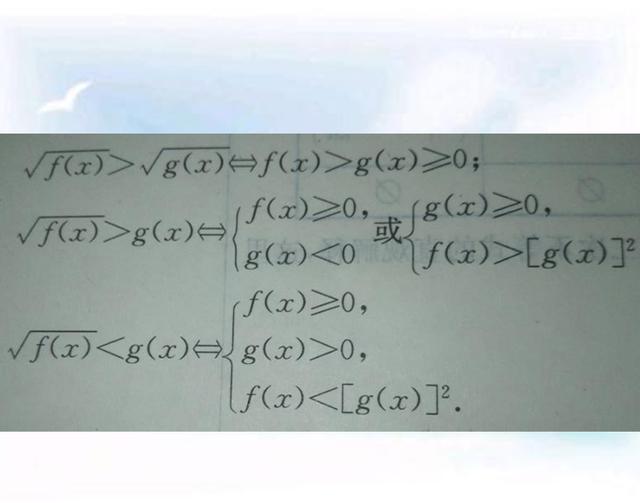 √f(x)>√g(x)⇔f(x)>g(x)≥0;
√f(x)>g(x)⇔{f(x)≥0, g(x)<0 或 {g(x)≥0, f(x)>[g(x)]²
√f(x)<g(x)⇔{f(x)≥0, g(x)>0, f(x)<[g(x)]².